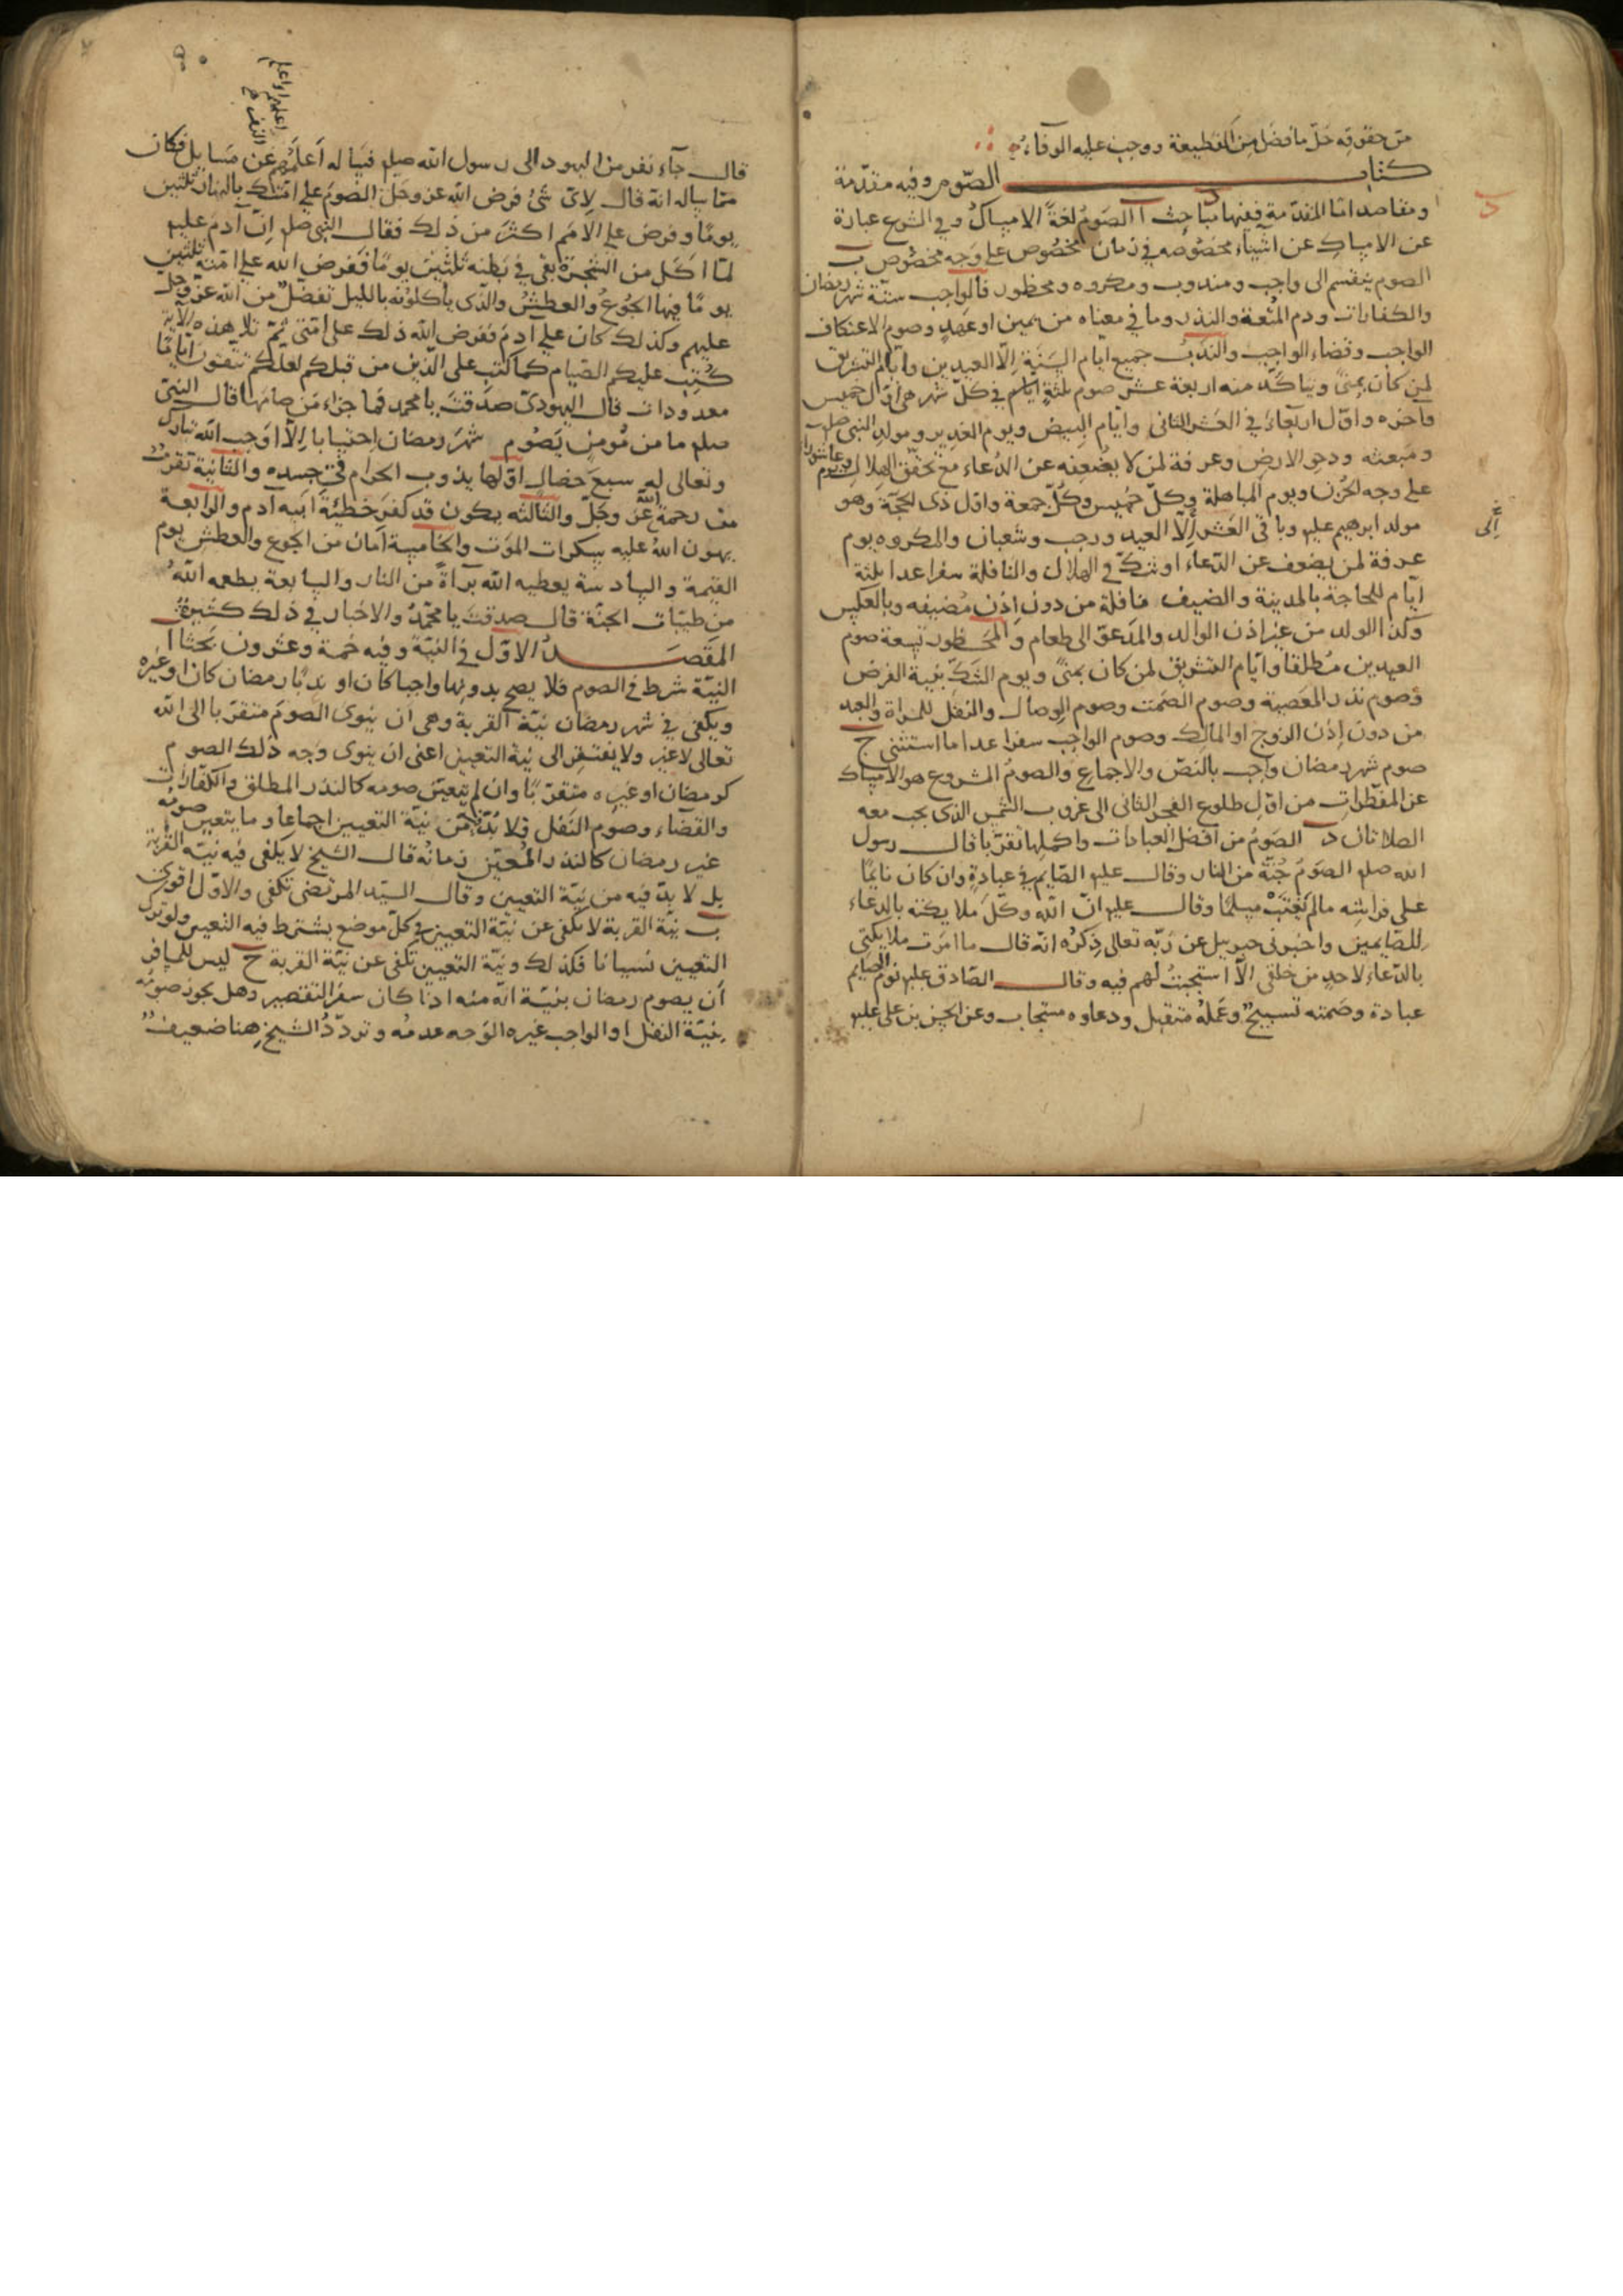 من حقوقه حلّ ما فضل من القطيعة ووجب عليه الوفاء
كتاب الصّوم وفيه مقدّمة
ومقاصد امّا المقدّمة ففيها مباحث آ الصوم لغةً الامساك وفي الشرع عبارة
عن الامساك عن اشياء مخصوصه في زمان مخصوص على وجه مخصوص ب
الصوم ينقسم الى واجب ومندوب ومكروه ومحظور فالواجب ستّة شهر رمضان
والكفارات ودم المُتعة والنذر وما في معناه من يمين او عهد وصوم الاعتكاف
الواجب وقضاء الواجب والندب جميع ايّام السَنَة الّا العيدين وايّام التشريق
لمن كان بمنىً ويتاكّد منه اربعة عشر صوم ثلثة ايام في كلّ شهر هي اوّل خميس
وآخره واوّل اربعاء في العشر الثاني وايّام البيض ويوم الغدير ومولد النبي صلم
ومبعثه ودحو الارض وعرفة لمن لا يضعفه عن الدّعاء مع تحقّق الهلال ويوم عاشورا
على وجه الحزن ويوم المباهلة وكلّ خميس وكُلّ جمعة واوّل ذي الحجّة وهو
مولد ابرهيم عليه وباقي العشر الّا العيد ورجب وشعبان والمكروه يوم
عرفة لمن يضعف عن الدّعاء او شكّ في الهلال والنافلة سفرا عدا ثلثة
ايّام للحاجة بالمدينة والضيف نافلة من دون اذن مُضيفه وبالعكس
وكذا الولد من غير اذن الوالد والمدعوّ الى طعام والمحظور تسعة صوم
العيدين مُطلقا وايّام التشريق لمن كان بمنىً ويوم الشكّ بنية الفرض
وصوم نذر المعصية وصوم الصَمت وصوم الوصال والنفل للمراة والعبد
من دون اذن الزوج او المالك وصوم الواجب سفرا عدا ما استثنى ج
صوم شهر رمضان واجب بالنصّ والاجماع والصوم المشروع هو الامساك
عن المفطرات من اوّل طلوع الفجر الثاني الى غروب الشمس الذي يجب معه
الصلاتان د الصوم من افضل العبادات واكملها تقرّبا قال رسول
الله صلم الصوم جُنّة من النار وقال عليه الصّايم في عبادة وان كان نايمًا
على فراشه مالم يغتب مسلمًا وقال عليه انّ الله وكّل ملايكته بالدعاء
للصّايمين واخبرني جبرييل عن ربّه تعالى ذكره انّه قال ما امرت ملايكتي
بالدّعاء لاحد من خلقي الّا استجبت لهم فيه وقال الصّادق عليه نوم الصايم
عبادة وصَمته تسبيح وعَملُه متقبل ودعاوه مستجاب وعن الحسن بن علي عليه
اِلى
اعلمهم واعلم
قال جآء نفر من اليهود الى رسول الله صلم فساله اعلمُهم عن مسايل فكان
ممّا ساله انّه قال لايّ شئ فرض الله عز وجل الصومَ على امّتك بالنهار ثلثين
يومًا وفرض على الامم اكثر من ذلك فقال النبي صلم انّ آدم عليه
لمّا اكل من الشجرة بقي في بطنه ثلثين يومًا ففرض الله على امّته ثلثين
يومًا فيها الجوع والعطش والذي ياكلونه بالليل تفضل من الله عزّ وجل
عليهم وكذلك كان على آدم ففرض الله ذلك على امّتي ثمّ تلا هذه الآية
كُتب عليكم الصّيام كما كتب على الذين من قبلكم لعلّكم تتقون ايّامًا
معدودات قال اليهودي صدقت يا محمد فما جزاء من صامها قال النبي
صلم ما من مُومن يَصُوم شهرَ رمضان احتسابا الّا اوجب الله تبارك
وتعالى له سبعَ خصال اوّلها يذوب الحرام في جسده والثانية تقرب
من رحمة الله عزّ وجَلّ والثالثه يكون قد كفر خطيئة ابيه ادم والرابعة
يهون الله عليه سكرات الموت والخامسة امان من الجوع والعطش يوم
القيمة والسادسة يعطيه الله براة من النار والسابعة يطعمه الله
من طيّبات الجنّة قال صدقت يا محمّد والاخبار في ذلك كثيرة
المقصدُ الاوّل في النيّة وفيه خمسة وعشرون بحثا آ
النيّة شرط في الصوم فلا يصح بدونها واجبا كان او ندبًا رمضان كان او غيره
ويكفي في شهر رمضان نيّة القربة وهي ان ينوي الصوم متقربا الى الله
تعالى لا غير ولا يفتقر الى نيّة التعيين اعني ان ينوي وجه ذلك الصوم
كرمضان او غيره متقربًا وان لم يتعيّن صومه كالنذر المطلق والكفّارات
والقضاء وصوم النفل فلا بُدّ من نيّة التعيين اجماعا وما يتعين صومه
غير رمضان كالنذر المُعيّن زمانُه قال الشيخ لا يكفي فيه نيّة القربة
بل لا بدّ فيه من نيّة التعيين وقال السيّد المرتضى تكفي والاوّل اقوى
ب نيّة القربة لا تكفي عن نيّة التعيين في كلّ موضع يشترط فيه التعيين ولو ترك
التعيين نسيانا فكذلك ونيّة التعيين تكفي عن نيّة القربة ج ليس للمسافر
ان يصوم رمضان بنيّة انّه منه اذا كان سفر التقصير وهل يجوز صومه
بنيّة النفل او الواجب غيره الوجه عدمُه وتردّد الشيخ هنا ضعيف